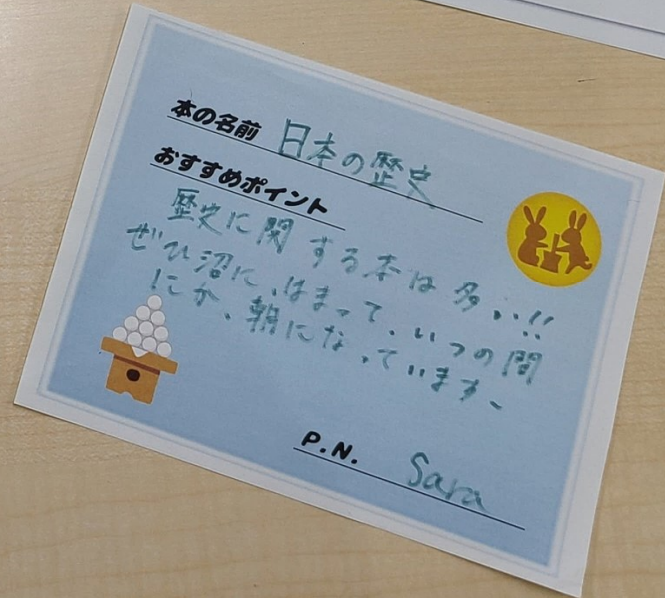 本の名前 日本の歴史
おすすめポイント
歴史に関する本は多い!!
ぜひ沼に、はまって、いつの間
にか、朝になっています〜
P.N. Sara